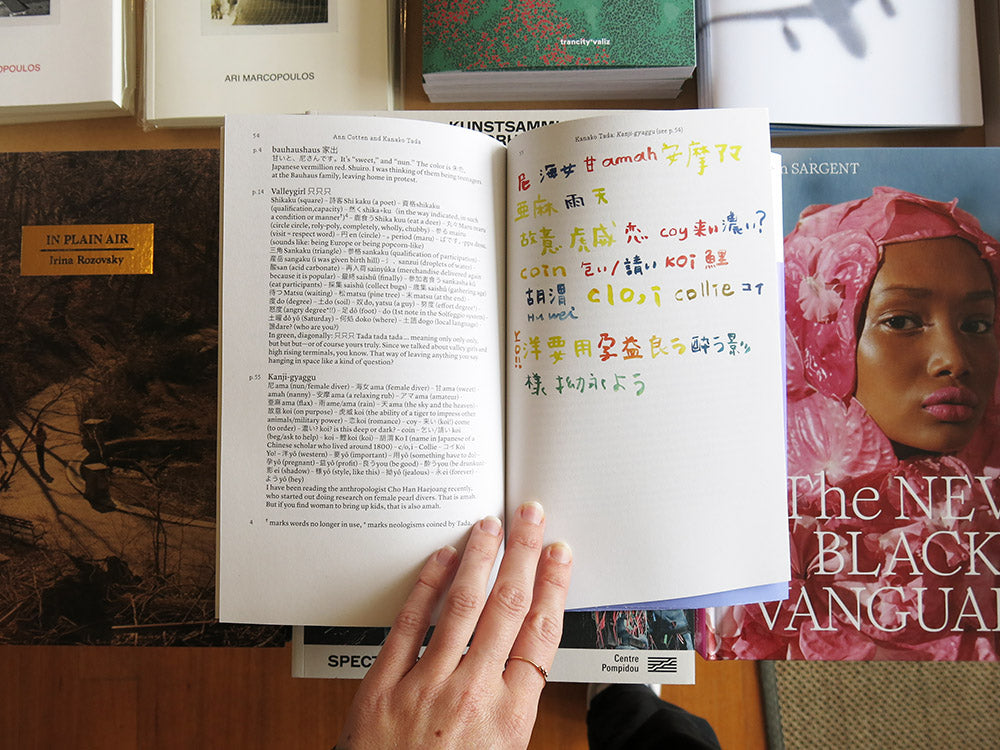 OPOULOS
ARI MARCOPOULOS
trancity*valiz
KUNSTSAMM
IN PLAIN AIR
Irina Rozovsky
54
Ann Cotten and Kanako Tada
p.4 bauhaushaus 家出
甘いと、尼さんです。It's "sweet," and "nun." The color is 朱色,
Japanese vermillion red. Shuiro. I was thinking of them being teenagers,
at the Bauhaus family, leaving home in protest.
p.14 Valleygirl 只只只
Shikaku (square) – 詩客 Shi kaku (a poet) – 資格 shikaku
(qualification, capacity) – 然く shika+ku (in the way indicated, in such
a condition or manner†)⁴ – 鹿食う Shika kuu (eat a deer) – 丸々 Maru maru
(circle circle, roly-poly, completely, wholly, chubby) – 参る mairu
(visit = respect word) – 円 en (circle) – 。period (maru) – ぱです。
(sounds like: being Europe or being popcorn-like)
三角 Sankaku (triangle) – 参格 sankaku (qualification of participation) –
産岳 sangaku (i was given birth hill) – 山水 sanzui (droplets of water) –
酸 san (acid carbonate) – 再入荷 sainyūka (merchandise delivered again
because it is popular) – 最終 saishū (finally) – 参加者食う sankasha kū
(eat participants) – 採集 saishū (collect bugs) – 歳集 saishū (gathering age)
待つ Matsu (waiting) – 松 matsu (pine tree) – 末 matsu (at the end) –
度 do (degree) – 土 do (soil) – 奴 do, yatsu (a guy) – 努度 (effort degree*) –
怒度 (angry degree*!!) – 足 dō (foot) – do (1st note in the Solfeggio system) –
土曜 dō yō (Saturday) – 何処 doko (where) – 土語 dogo (local language) –
誰 dare? (who are you?)
In green, diagonally: 只只只 Tada tada tada ... meaning only only only,
but but but—or of course yours truly. Since we talked about valley girls and
high rising terminals, you know. That way of leaving anything you say
hanging in space like a kind of question?
p.55 Kanji-gyaggu
尼 ama (nun/female diver) – 海女 ama (female diver) – 甘 ama (sweet) –
amah (nanny) – 安摩 ama (a relaxing rub) – アマ ama (amateur) –
亜麻 ama (flax) – 雨 ame/ama (rain) – 天 ama (the sky and the heaven)
故意 koi (on purpose) – 虎威 koi (the ability of a tiger to impress other
animals/military power) – 恋 koi (romance) – coy – 来い (koi!) come
(to order) – 濃い? koi? is this deep or dark? – coin – 乞い/請い koi
(beg/ask to help) – koi – 鯉 koi (koi) – 胡渭 Ko I (name in Japanese of a
Chinese scholar who lived around 1800) – c/o,i – Collie – コイ Koi
Yo! – 洋 yō (western) – 要 yō (important) – 用 yō (something have to do) –
孕 yō (pregnant) – 益 yō (profit) – 良う you (be good) – 酔う you (be drunken) –
影 ei (shadow) – 様 yō (style, like this) – 拗 yō (jealous) – 永 ei (forever) –
よう yō (hey)
I have been reading the anthropologist Cho Han Haejoang recently,
who started out doing research on female pearl divers. That is amah.
But if you find woman to bring up kids, that is also amah.
4 † marks words no longer in use, * marks neologisms coined by Tada.
55
Kanako Tada: Kanji-gyaggu (see p.54)
尼 海女 甘 amah 安摩 アマ
亜麻 雨 天
故意 虎威 恋 coy 来い 濃い?
coin 乞い/請い koi 鯉
胡渭 c/o,i collie コイ
Hu wei
YO!! 洋 要 用 孕 益 良う 酔う 影
様 拗 永 よう
SARGENT
The NEW
BLACK
VANGUA
SPECT
Centre
Pompidou